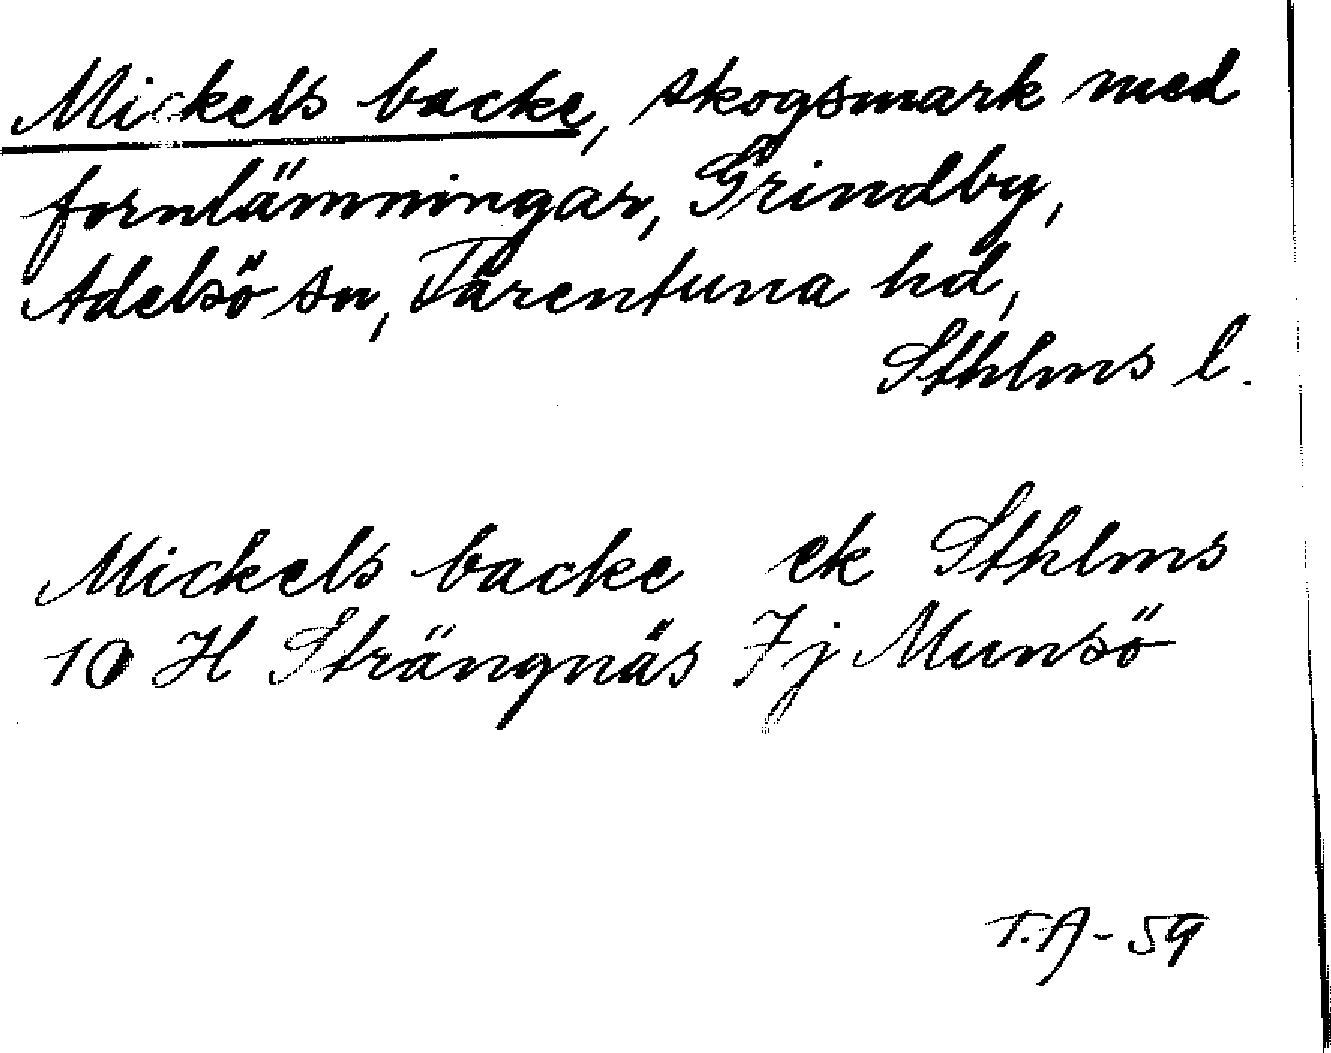 Mickels backe, skogsmark med
fornlämningar, Grindby,
Adelsö sn, Färentuna hd,
Sthlms l.
Mickels backe ek Sthlms
10 H Strängnäs 7j Munsö
T.A-59